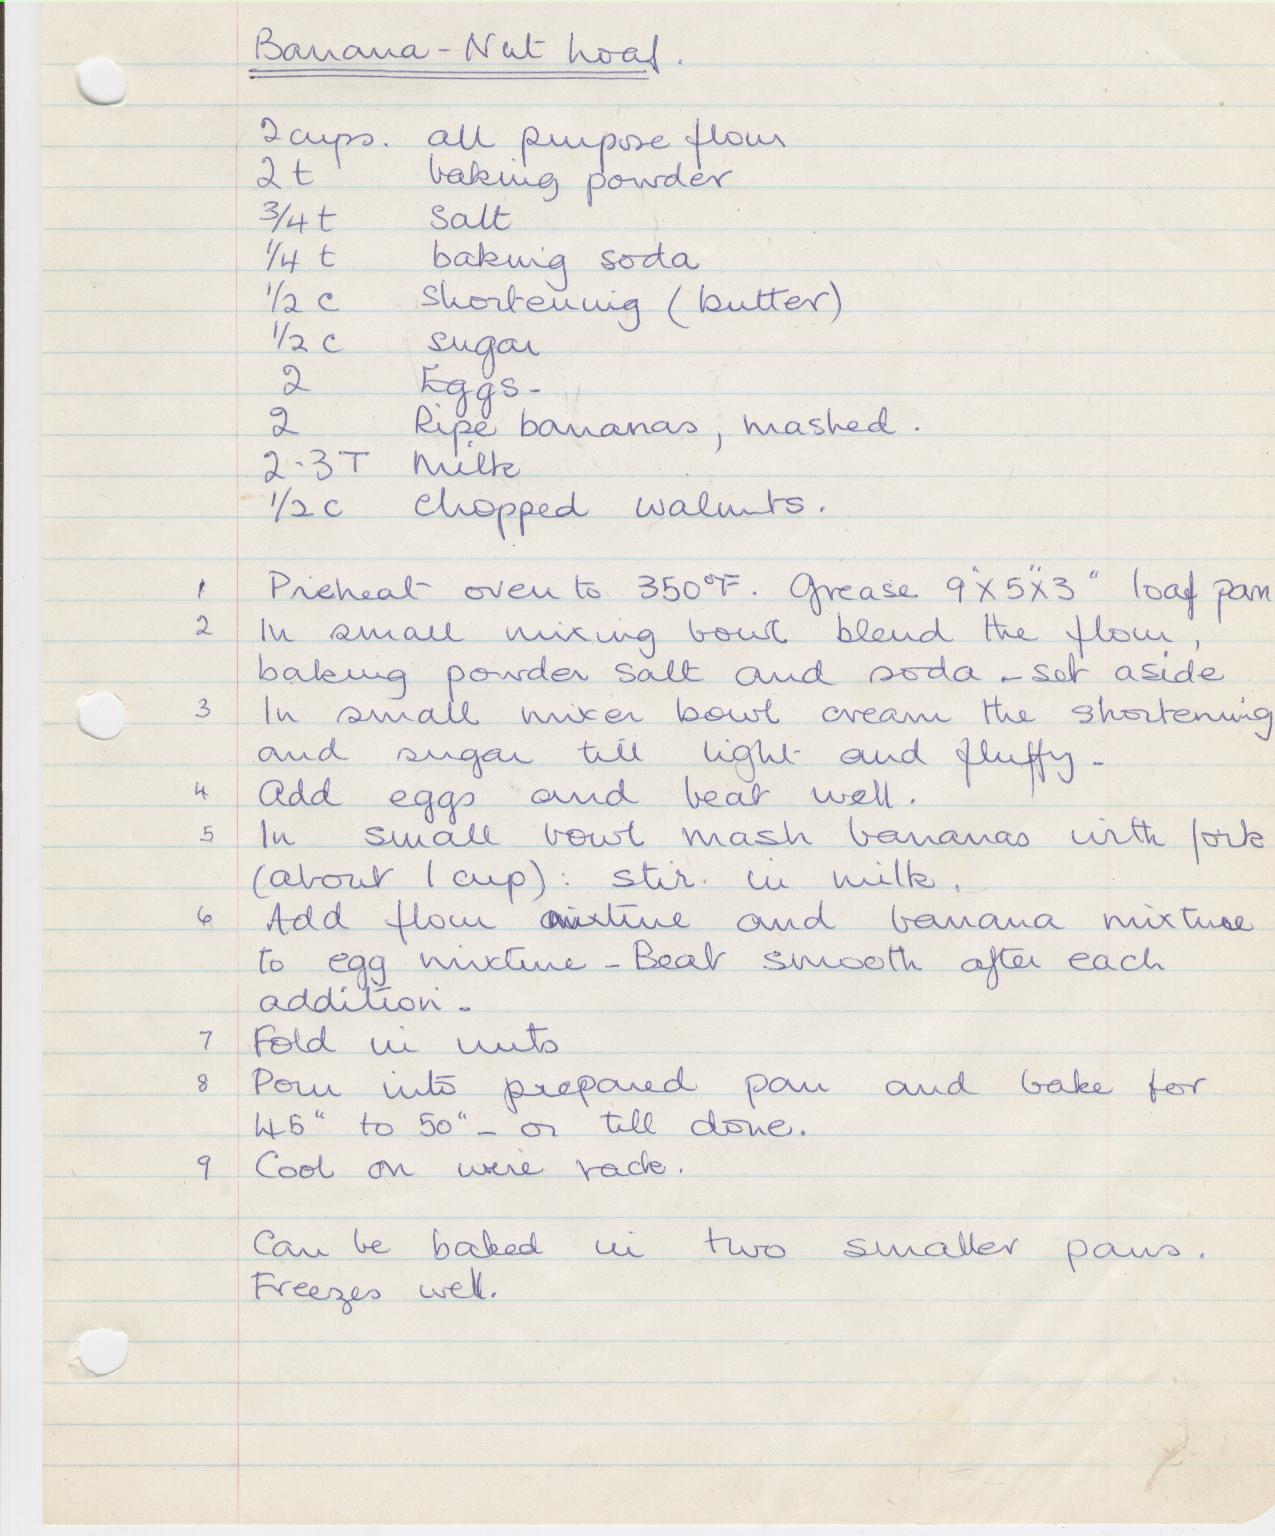 Banana-Nut Loaf.
2 cups. all purpose flour
2 t baking powder
3/4 t Salt
1/4 t baking soda
1/2 c Shortening (butter)
1/2 c sugar
2 Eggs-
2 Ripe bananas, mashed.
2-3 T Milk
1/2 c Chopped walnuts.
1 Preheat oven to 350°F. Grease 9"x5"x3" loaf pan
2 In small mixing bowl blend the flour,
baking powder salt and soda - set aside
3 In small mixer bowl cream the shortening
and sugar till light and fluffy-
4 Add eggs and beat well.
5 In small bowl mash bananas with fork
(about 1 cup): stir in milk.
6 Add flour mixture and banana mixture
to egg mixture - Beat smooth after each
addition-
7 Fold in nuts
8 Pour into prepared pan and bake for
45" to 50" - or till done.
9 Cool on wire rack.
Can be baked in two smaller pans.
Freezes well.